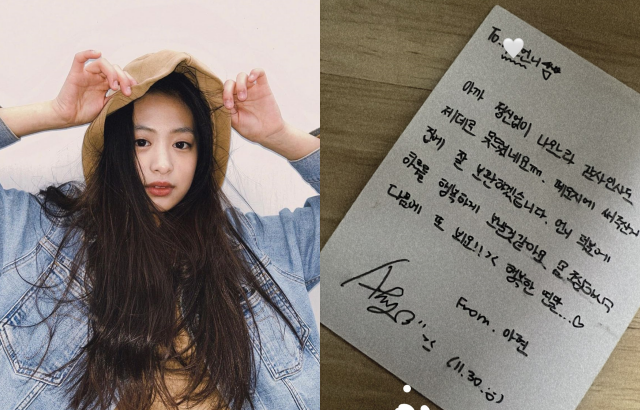 To. 언니
아까 정신없이 나오느라 감사인사도
제대로 못했네요ㅠㅠ. 메모지에 써주신거
집가 잘 보관하겠습니다. 언니 덕분에
하루를 행복하게 보낸것같아요 몸 조심하시구
다음에 또 뵈요!! >< 행복한 연말...♡
From. 아현
(11.30. :))